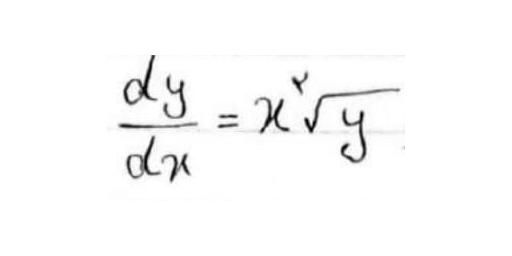 dy/dx = x²√y